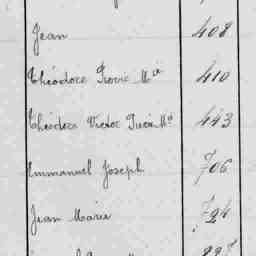 Jean 408
Théodore Pierre Mie 410
Théodore Victor Pierre Me 443
Emmanuel Joseph 706
Jean Marie 724